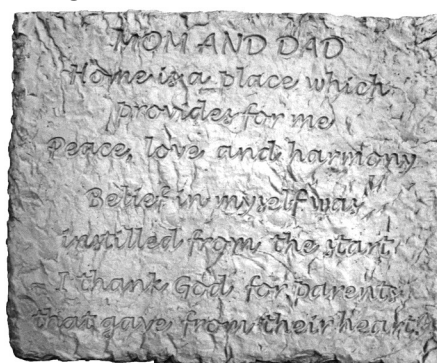 MOM AND DAD
Home is a place which
provides for me
Peace, love and harmony
Belief in myself was
instilled from the start
I thank God for parents
that gave from their heart!